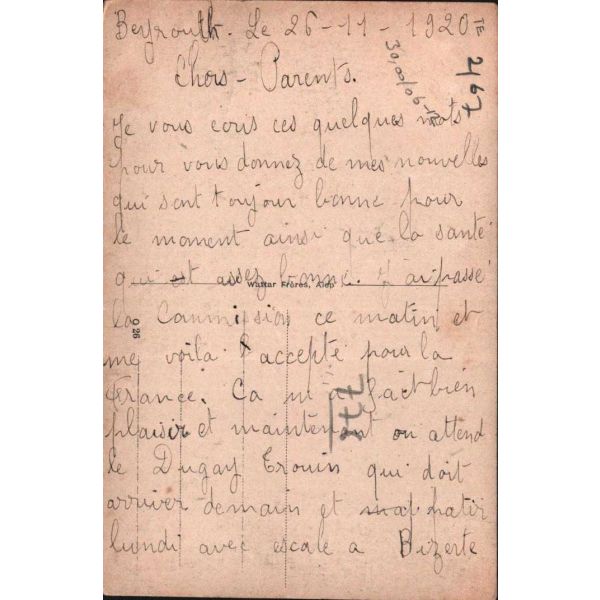 Beyrouth. Le 26-11-1920
2/67
Chers-Parents.
Je vous ecris ces quelques mots
pour vous donnez de mes nouvelles
qui sont toujour bonne pour
le moment ainsi que la santé
qui est assez bonne. J'ai passé
Wattar Frères, Alep
la Commission ce matin et
926
me voila accepté pour la
France. Ca m'a fait bien
778
plaisir et maintenant on attend
le Dugay Trouin qui doit
arriver demain et partir
lundi avec escale a Bizerte